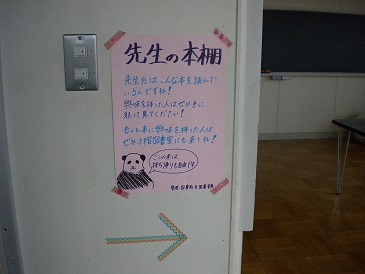 先生の本棚
先生方はこんな本を読んで
いるんですね!
興味を持った人はぜひ手に
取って見てください!
もっと本に興味を持った人は
ぜひ3階図書室にも来てね!
ここの本は
持ち帰り自由です